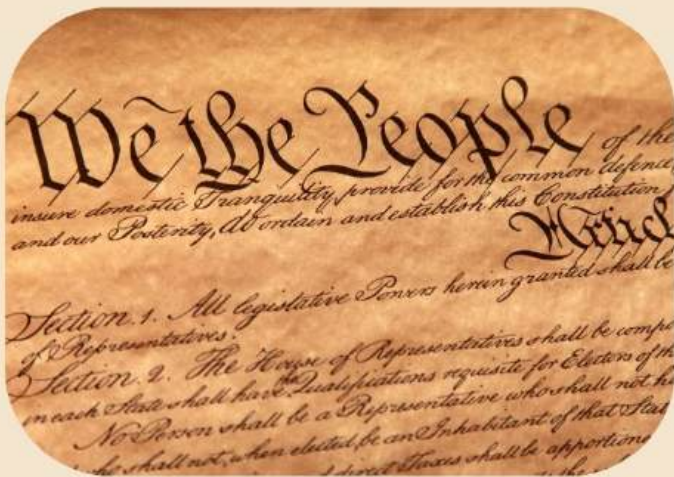 We the People of the
insure domestic Tranquility, provide for the common defence
and our Posterity, do ordain and establish this Constitution
Articl
Section. 1. All legislative Powers herein granted shall be
of Representatives.
Section. 2. The House of Representatives shall be compo
in each State shall have the Qualifications requisite for Electors of the
No Person shall be a Representative who shall not ha
who shall not, when elected, be an Inhabitant of that Stat
direct Taxes shall be apportione